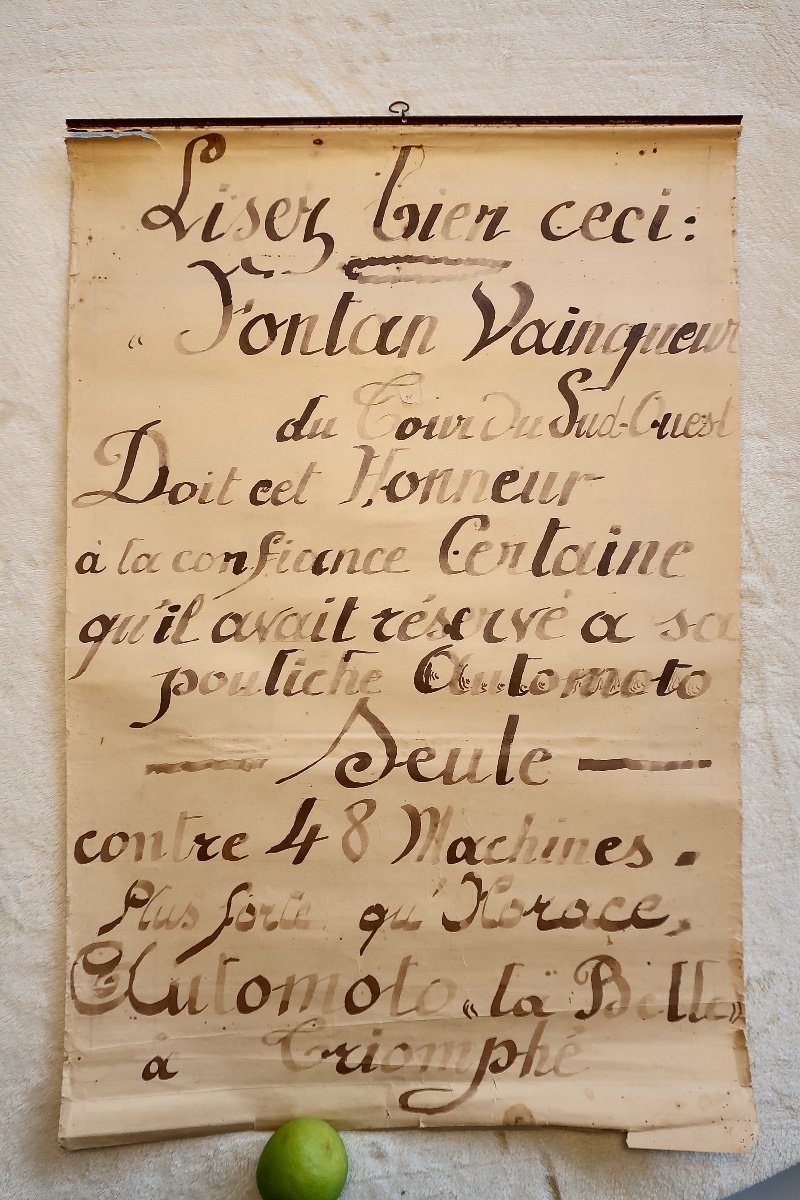 Lisez bien ceci:
" Fontan Vainqueur
du Tour du Sud-Ouest
Doit cet Honneur
à la confiance Certaine
qu'il avait réservé a sa
pouliche Automoto
— Seule —
contre 48 Machines.
Plus forte qu'Horace,
Automoto "la Belle"
a Triomphé